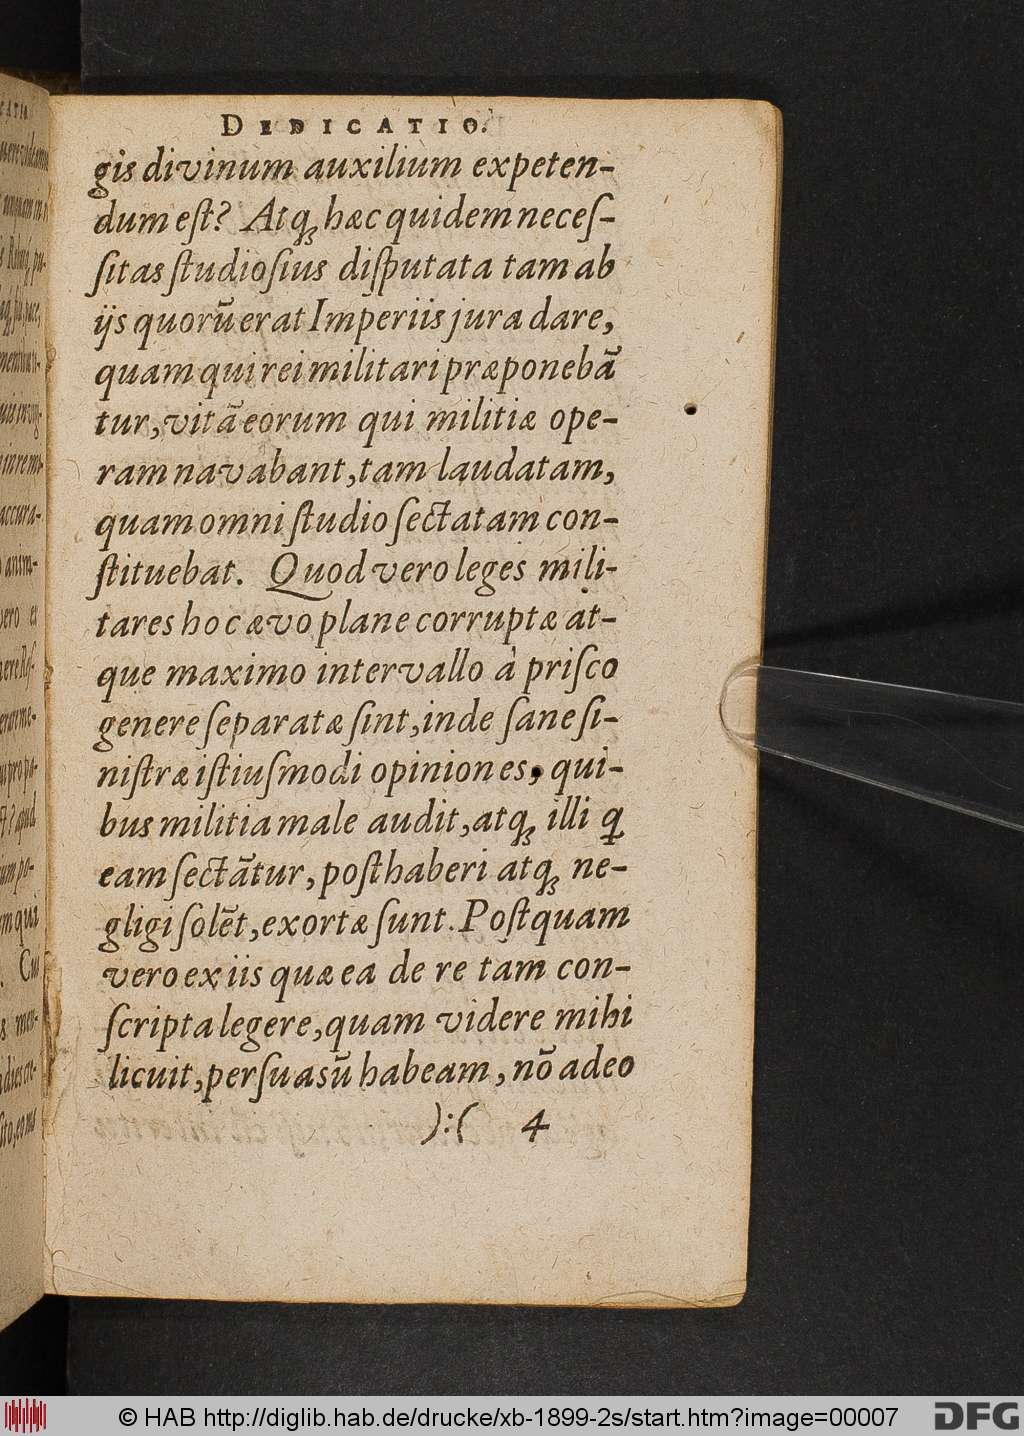 DEDICATIO.
gis divinum auxilium expeten-
dum eſt? Atq́ꝫ hæc quidem neceſ-
ſitas ſtudioſius diſputata tam ab
ijs quorũ erat Imperiis jura dare,
quam qui rei militari præponebã
tur, vitã eorum qui militiæ ope-
ram navabant, tam laudatam,
quam omni ſtudio ſectatam con-
ſtituebat. Quod vero leges mili-
tares hoc ævo plane corruptæ at-
que maximo intervallo à priſco
genere ſeparatæ ſint, inde ſane ſi-
niſtræ iſtiuſmodi opiniones, qui-
bus militia male audit, atqꝫ illi q
eam ſectãtur, poſthaberi atqꝫ ne-
gligi ſolẽt, exortæ ſunt. Poſtquam
vero ex iis quæ ea de re tam con-
ſcripta legere, quam videre mihi
licuit, perſuasũ habeam, nõ adeo
):( 4
© HAB http://diglib.hab.de/drucke/xb-1899-2s/start.htm?image=00007
DFG